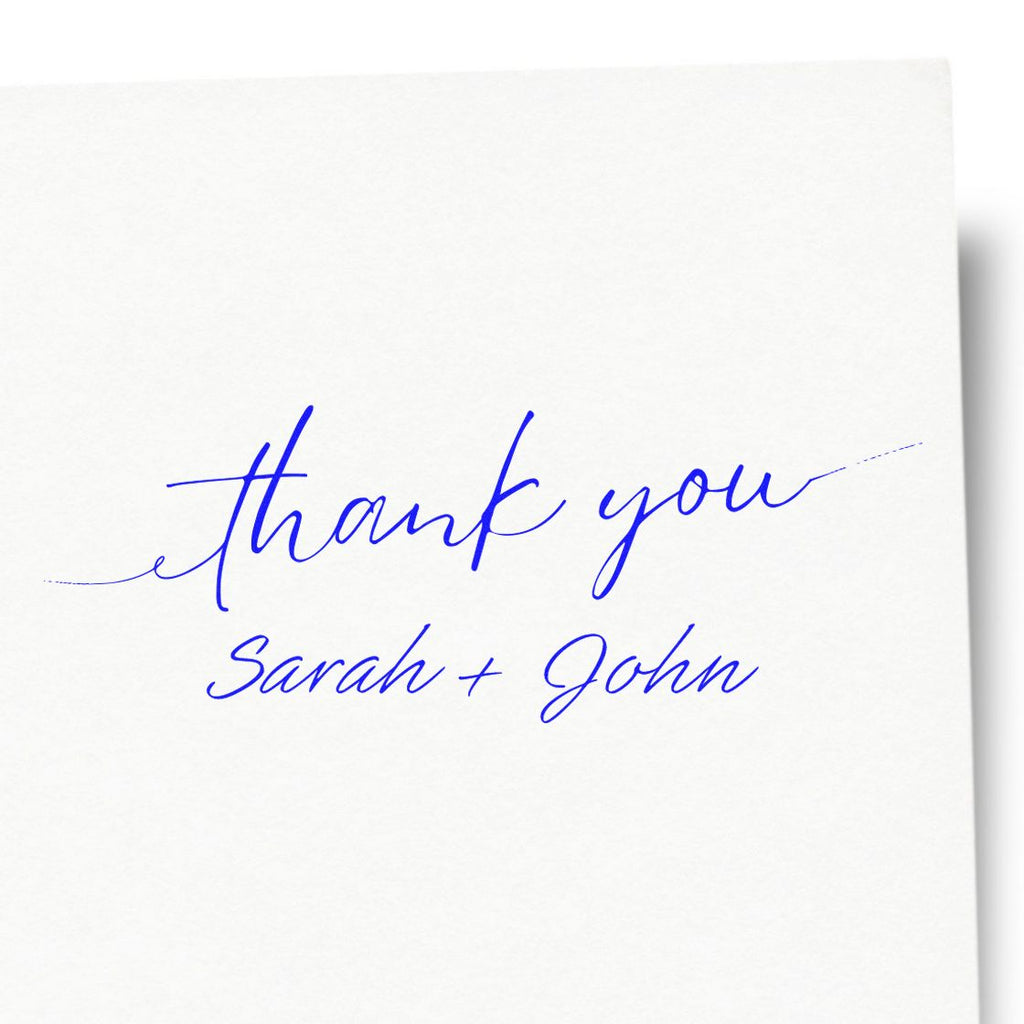 thank you
Sarah + John